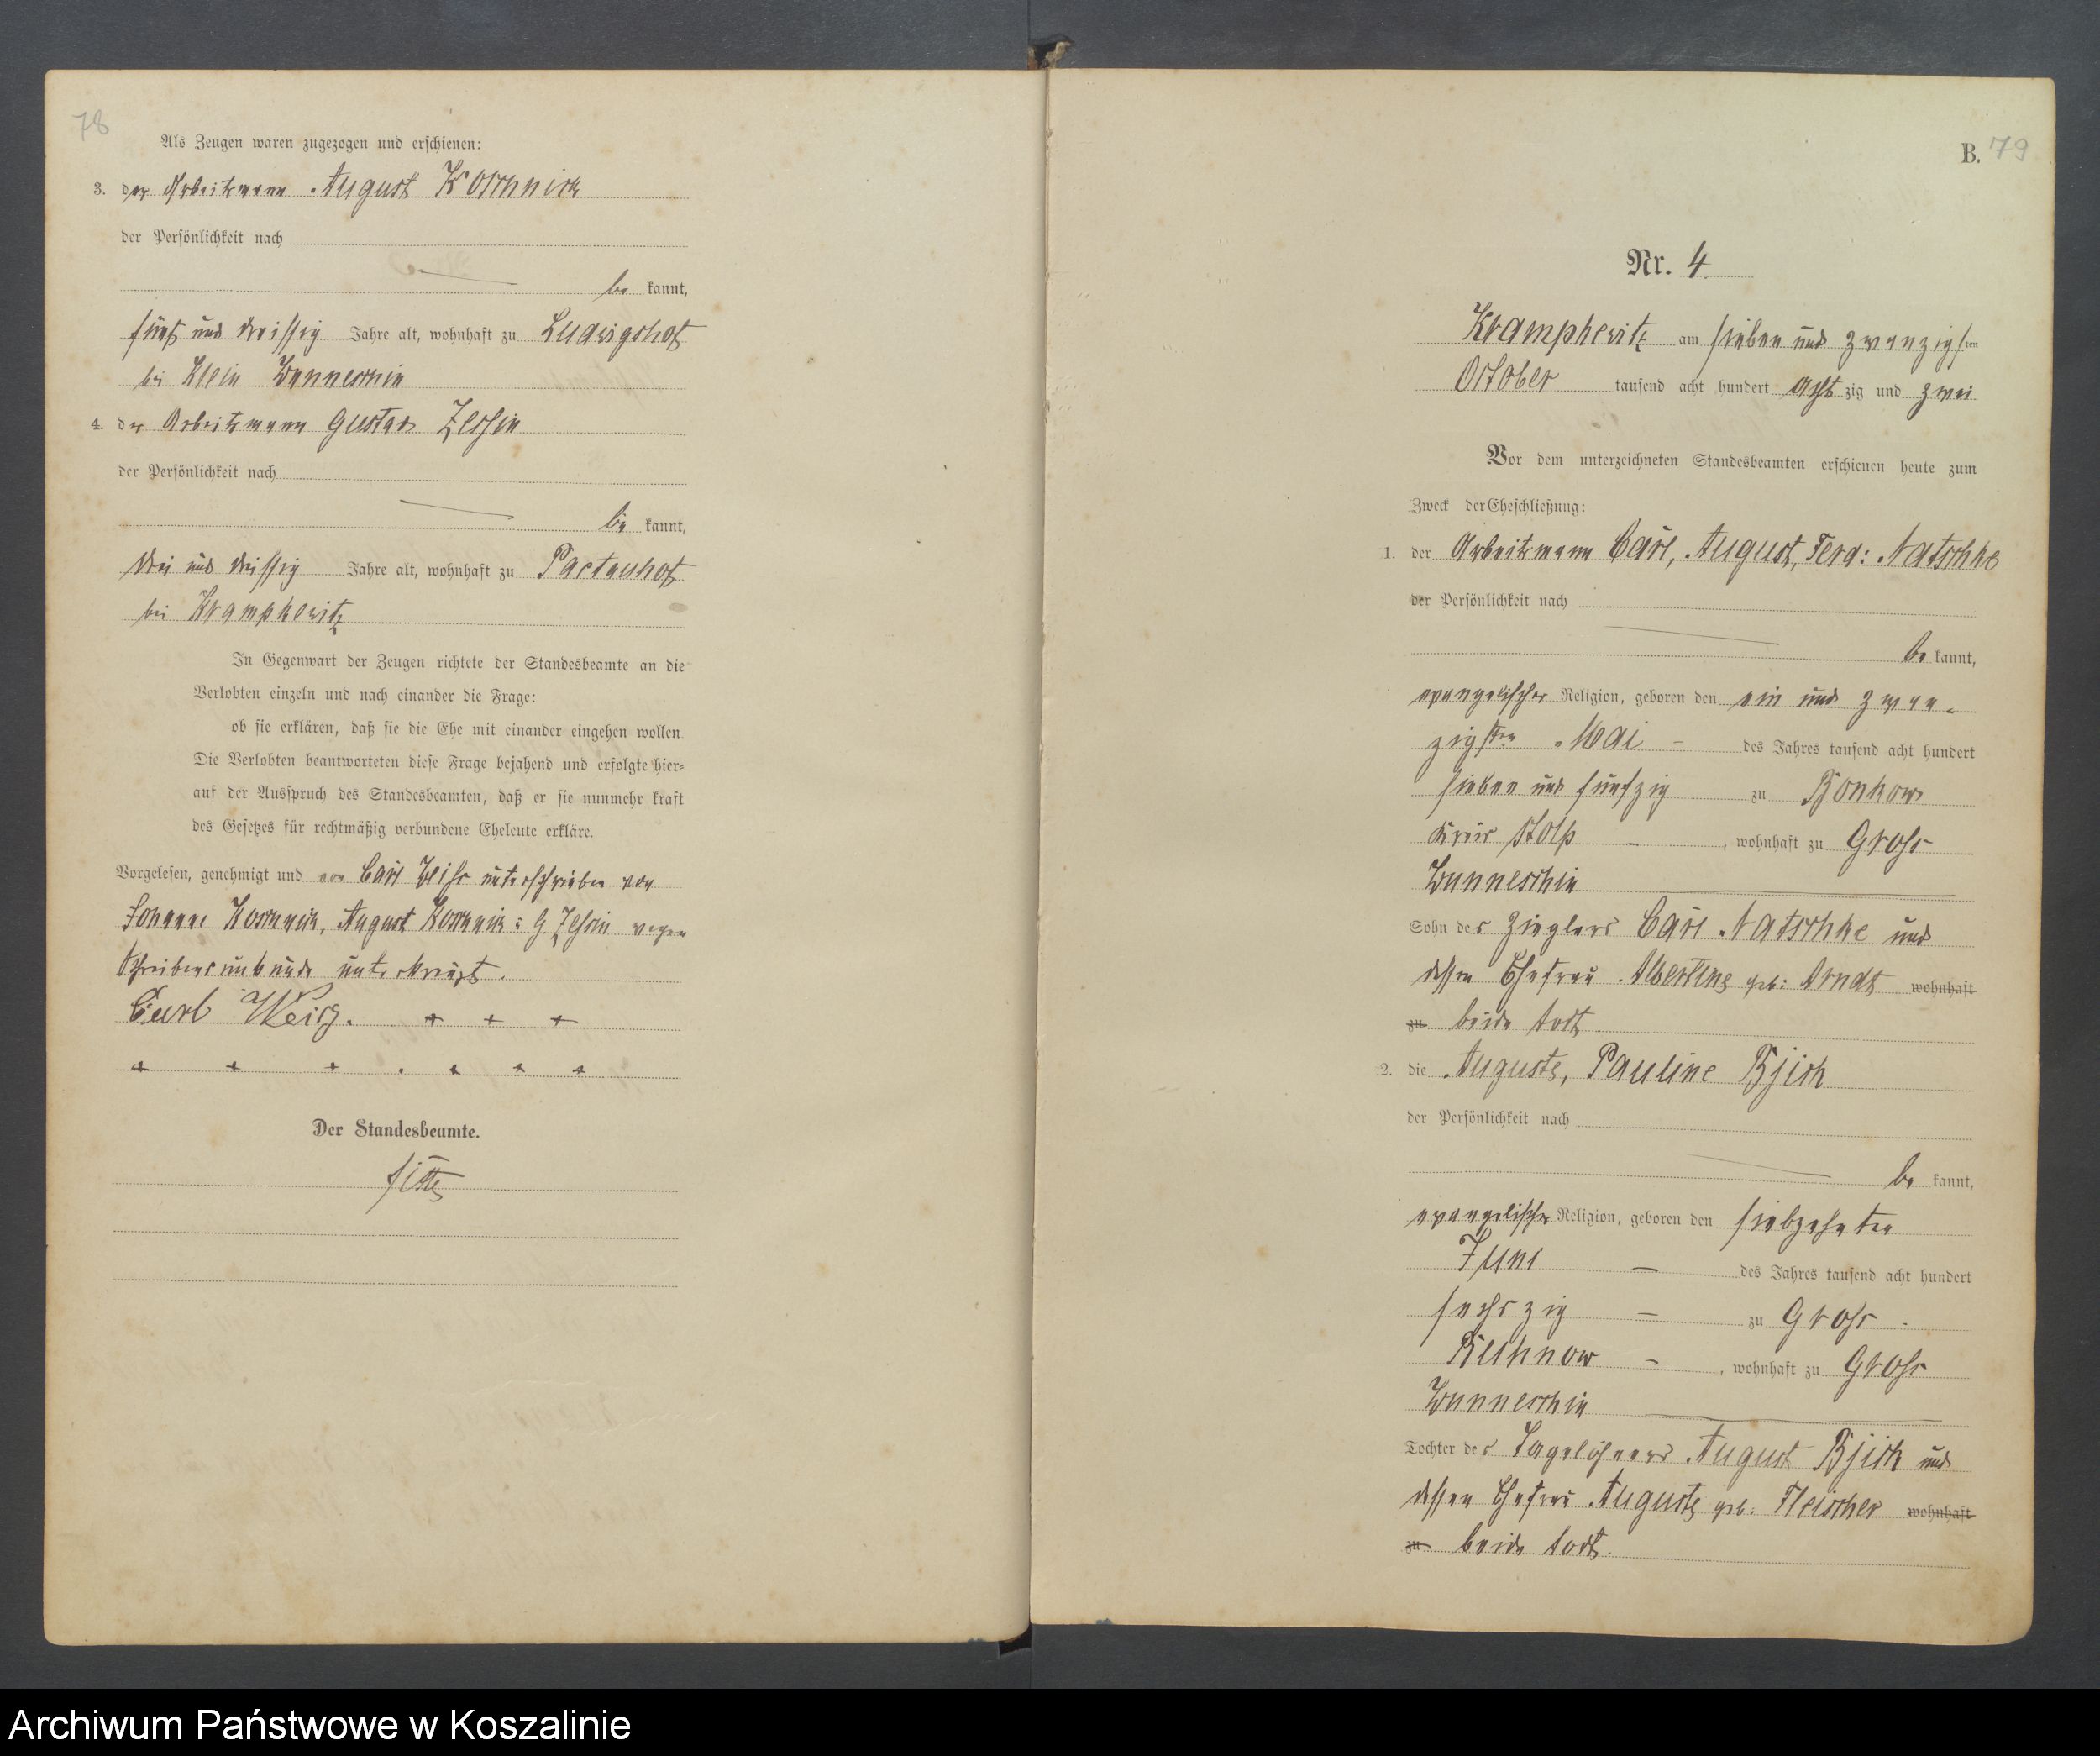 78
Als Zeugen waren zugezogen und erschienen:
3. der Arbeitsmann August Koschnick
der Persönlichkeit nach
be kannt,
fünf und dreissig Jahre alt, wohnhaft zu Ludwigshof
bei Klein Wunneschin
4. der Arbeitsmann Gustav Zessin
der Persönlichkeit nach
be kannt,
drei und dreissig Jahre alt, wohnhaft zu
bei Krampkewitz
In Gegenwart der Zeugen richtete der Standesbeamte an die
Verlobten einzeln und nach einander die Frage:
ob sie erklären, daß sie die Ehe mit einander eingehen wollen.
Die Verlobten beantworteten diese Frage bejahend und erfolgte hier=
auf der Ausspruch des Standesbeamten, daß er sie nunmehr kraft
des Gesetzes für rechtmäßig verbundene Eheleute erkläre.
Vorgelesen, genehmigt und von Carl Weiss unterschrieben von
Johanne Koschnick, August Koschnick u. G. Zessin wegen
Schreibensunkunde unterkreuzt.
Carl Weiß. + + +
+ + + . + + +
Der Standesbeamte.
B. 79
Nr. 4.
Krampkewitz am sieben und zwanzigsten
October tausend acht hundert achtzig und zwei
Vor dem unterzeichneten Standesbeamten erschienen heute zum
Zweck der Eheschließung:
1. der Arbeitsmann Carl, August, Ferd: Natschke
der Persönlichkeit nach
be kannt,
evangelischer Religion, geboren den ein und zwan-
zigsten Mai - des Jahres tausend acht hundert
sieben und fünfzig zu Bonkow
Kreis Stolp - , wohnhaft zu Gross
Wunneschin
Sohn des Zieglers Carl Natschke und
dessen Ehefrau Albertine geb: Arndt wohnhaft
zu beide todt.
2. die Auguste, Pauline Bjick
der Persönlichkeit nach
be kannt,
evangelischer Religion, geboren den siebzehnten
Juni - des Jahres tausend acht hundert
sechszig - zu Gross
Ruhnow - , wohnhaft zu Gross
Wunneschin
Tochter des Tagelöhners August Bjick und
dessen Ehefrau Auguste geb. Fleischer wohnhaft
zu beide todt.
Archiwum Państwowe w Koszalinie